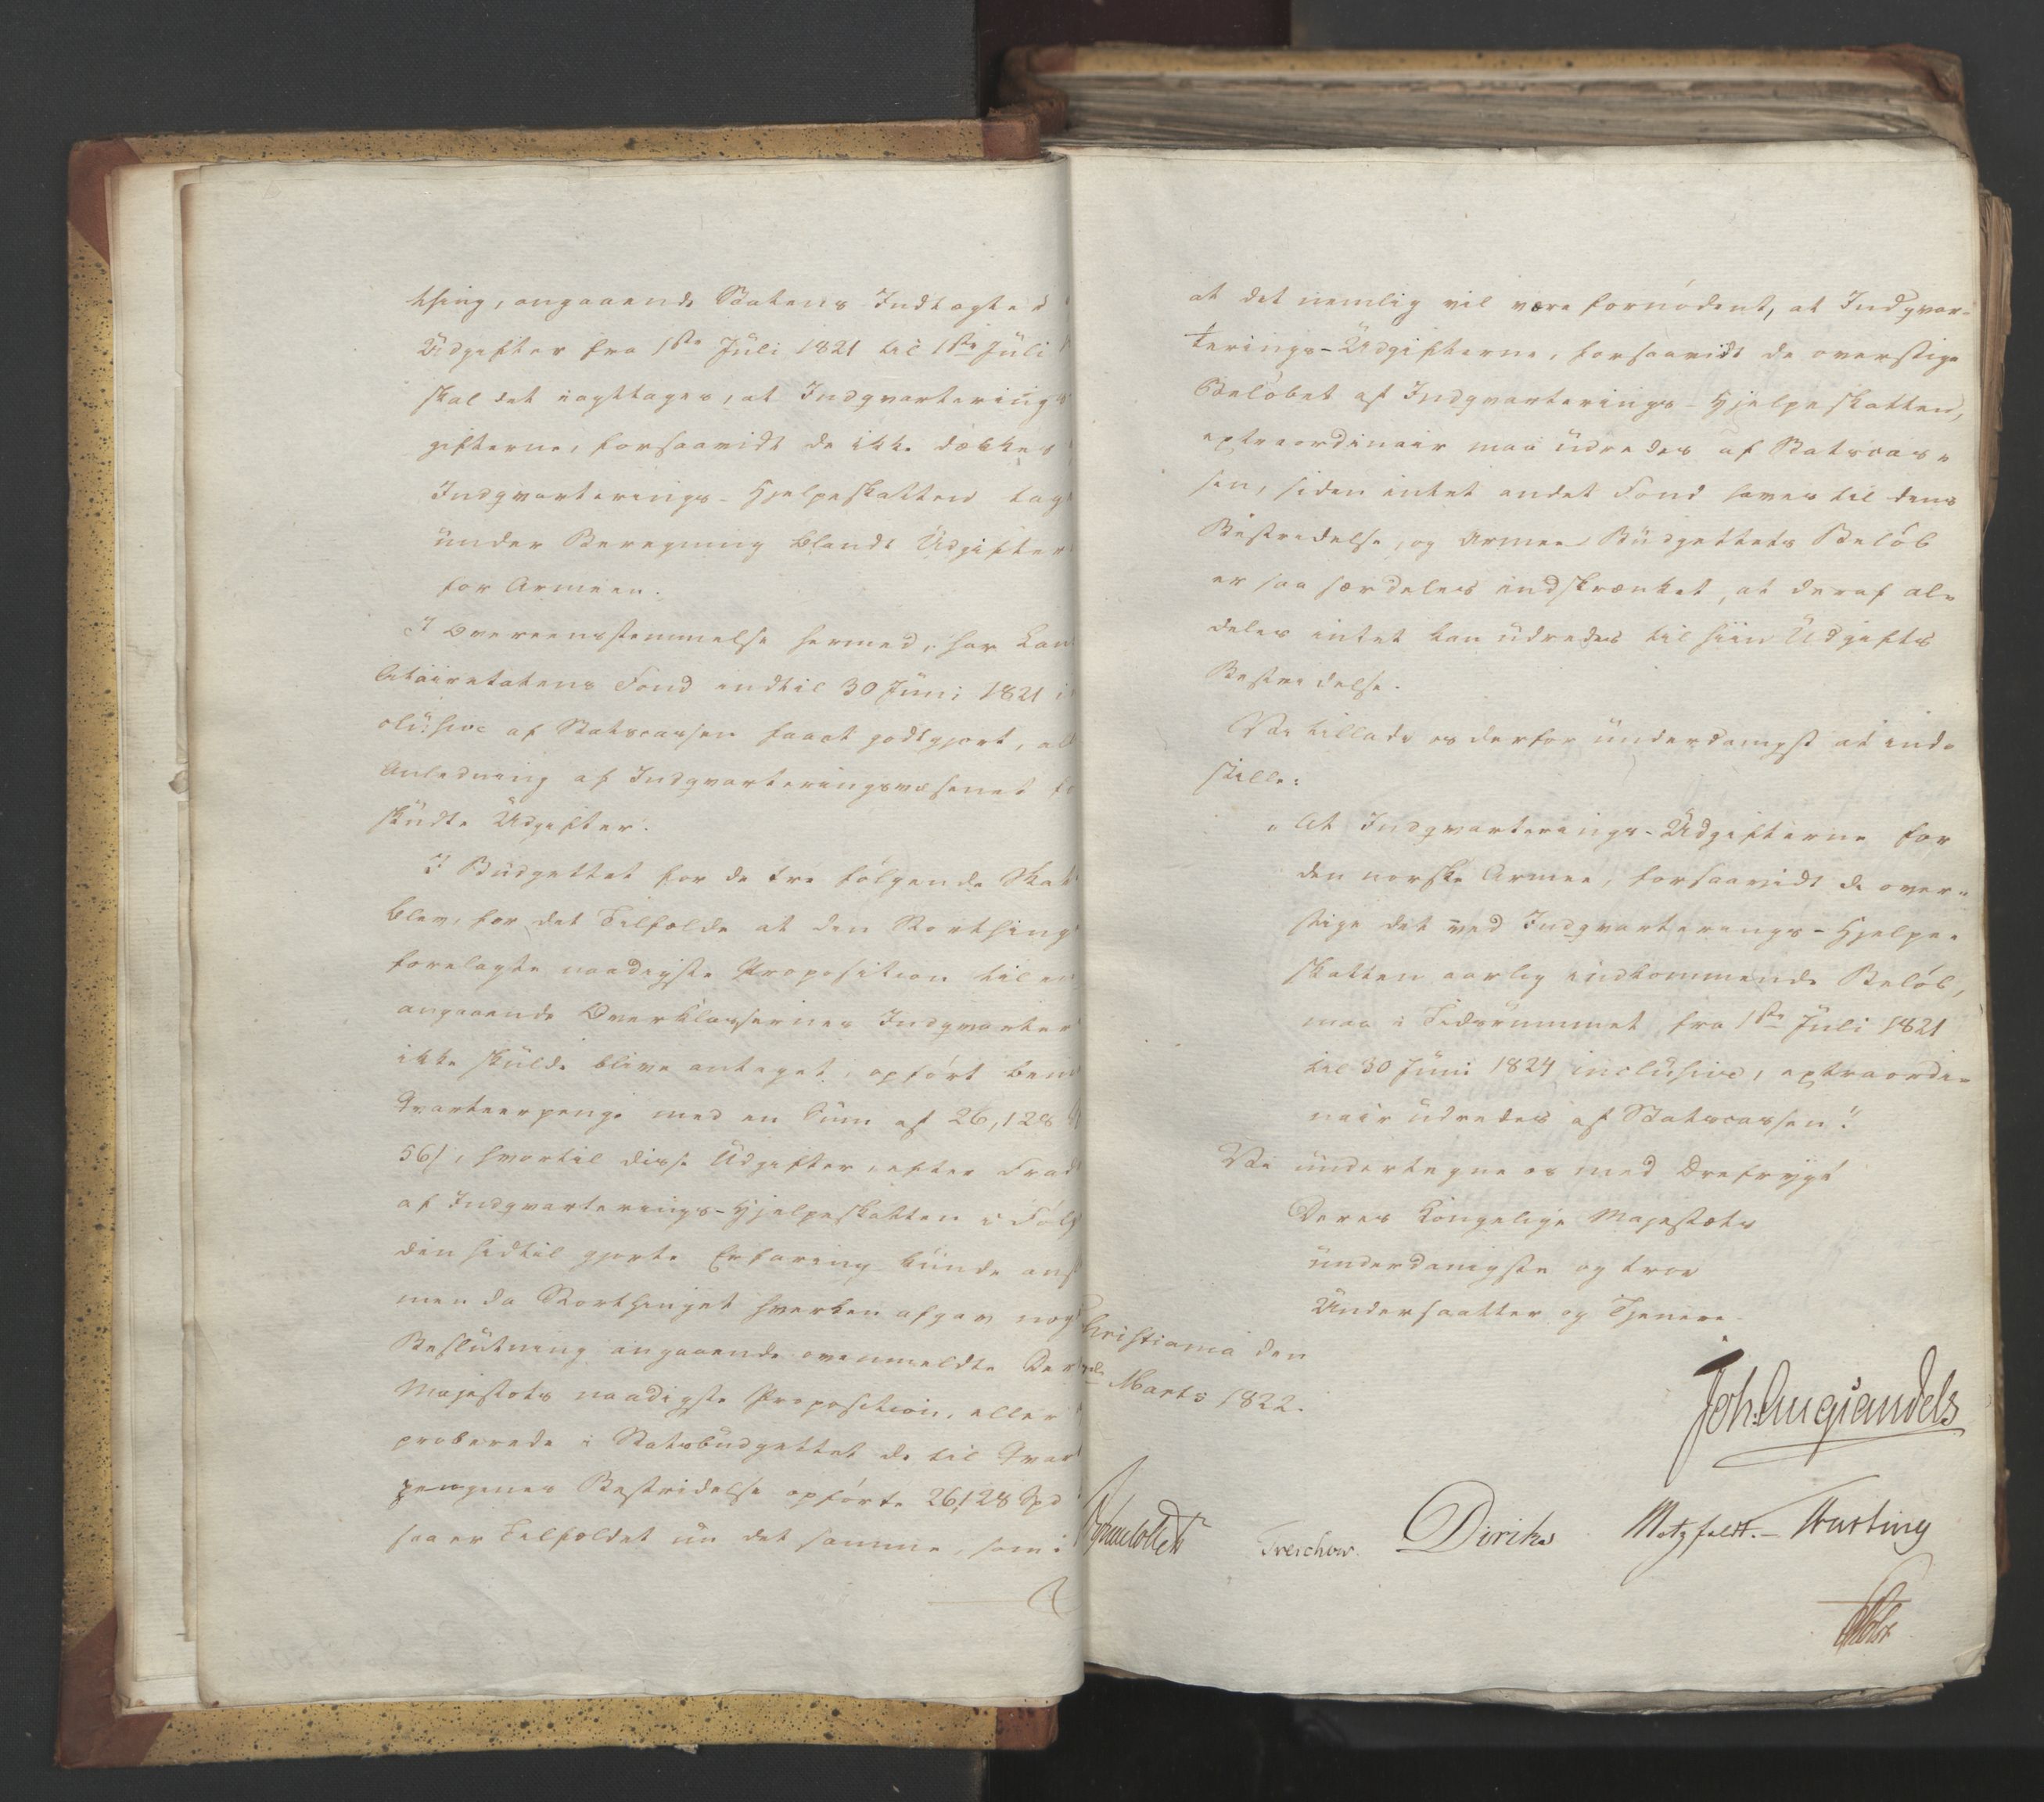 thing, angaaende Statens Indtægter
Udgifter fra 1ste Juli 1821 til 1ste Juli
skal det iagttages, at Indqvarterings
gifterne, forsaavidt de ikke dækkes
Indqvarterings-Hjelpeskatten tag
under Beregning blandt Udgifter
for Armeen.
I Overeensstemmelse hermed, har Com
Etatens Fond indtil 30 Juni 1821
clusive af Statscassen faaet godtgjort, all
Anledning af Indqvarteringsvæsenet
skudte Udgifter.
I Budgettet for de tre følgende Skat
blev, for det Tilfælde at den Storthing
forelagte naadigste Proposition til en
angaaende Overklassernes Indqvarter
ikke skulde blive antaget, opført
Qvarteerpenge med en Sum af 26,128
56 ß, hvortil disse Udgifter, efter Frad
af Indqvarterings-Hjelpeskatten i Følg
den hidtil gjorte Erfaring kunde ans
men da Storthinget hverken afgav nog
Beslutning angaaende ovenmeldte Der
Majestæts naadigste Proposition, eller
proberede i Statsbudgettet de til Qvar
pengenes Bestridelse opførte 26,128 Spd
saa er Tilfældet nu det samme, som i
at det nemlig vil være fornødent, at Indqvar-
terings-Udgifterne, forsaavidt de overstige
Beløbet af Indqvarterings-Hjelpeskatten,
extraordinair maa udredes af Statscas-
sen, siden intet andet Fond haves til dens
Bestridelse, og Armee Budgettets Beløb
er saa særdeles indskrænket, at deraf al-
deles intet kan udredes til hiin Udgifts
Bestridelse.
Vi tillade os derfor underdanigst at ind-
stille:
"At Indqvarterings-Udgifterne for
den norske Armee, forsaavidt de over-
stige det ved Indqvarterings-Hjelpe-
skatten aarlig indkommende Beløb,
maa i Tidsrummet fra 1ste Juli 1821
til 30 Juni 1824 inclusive, extraordi-
nair udredes af Statscassen."
Vi undertegne os med Ærefrygt
Deres Kongelige Majestæts
underdanigste og troe
Undersaatter og Tjenere.
Christiania den
Marts 1822.
Joh. Aug. Sandels
Sommerhielm Treschow. Diriks Motzfeldt.- Fasting
Holst